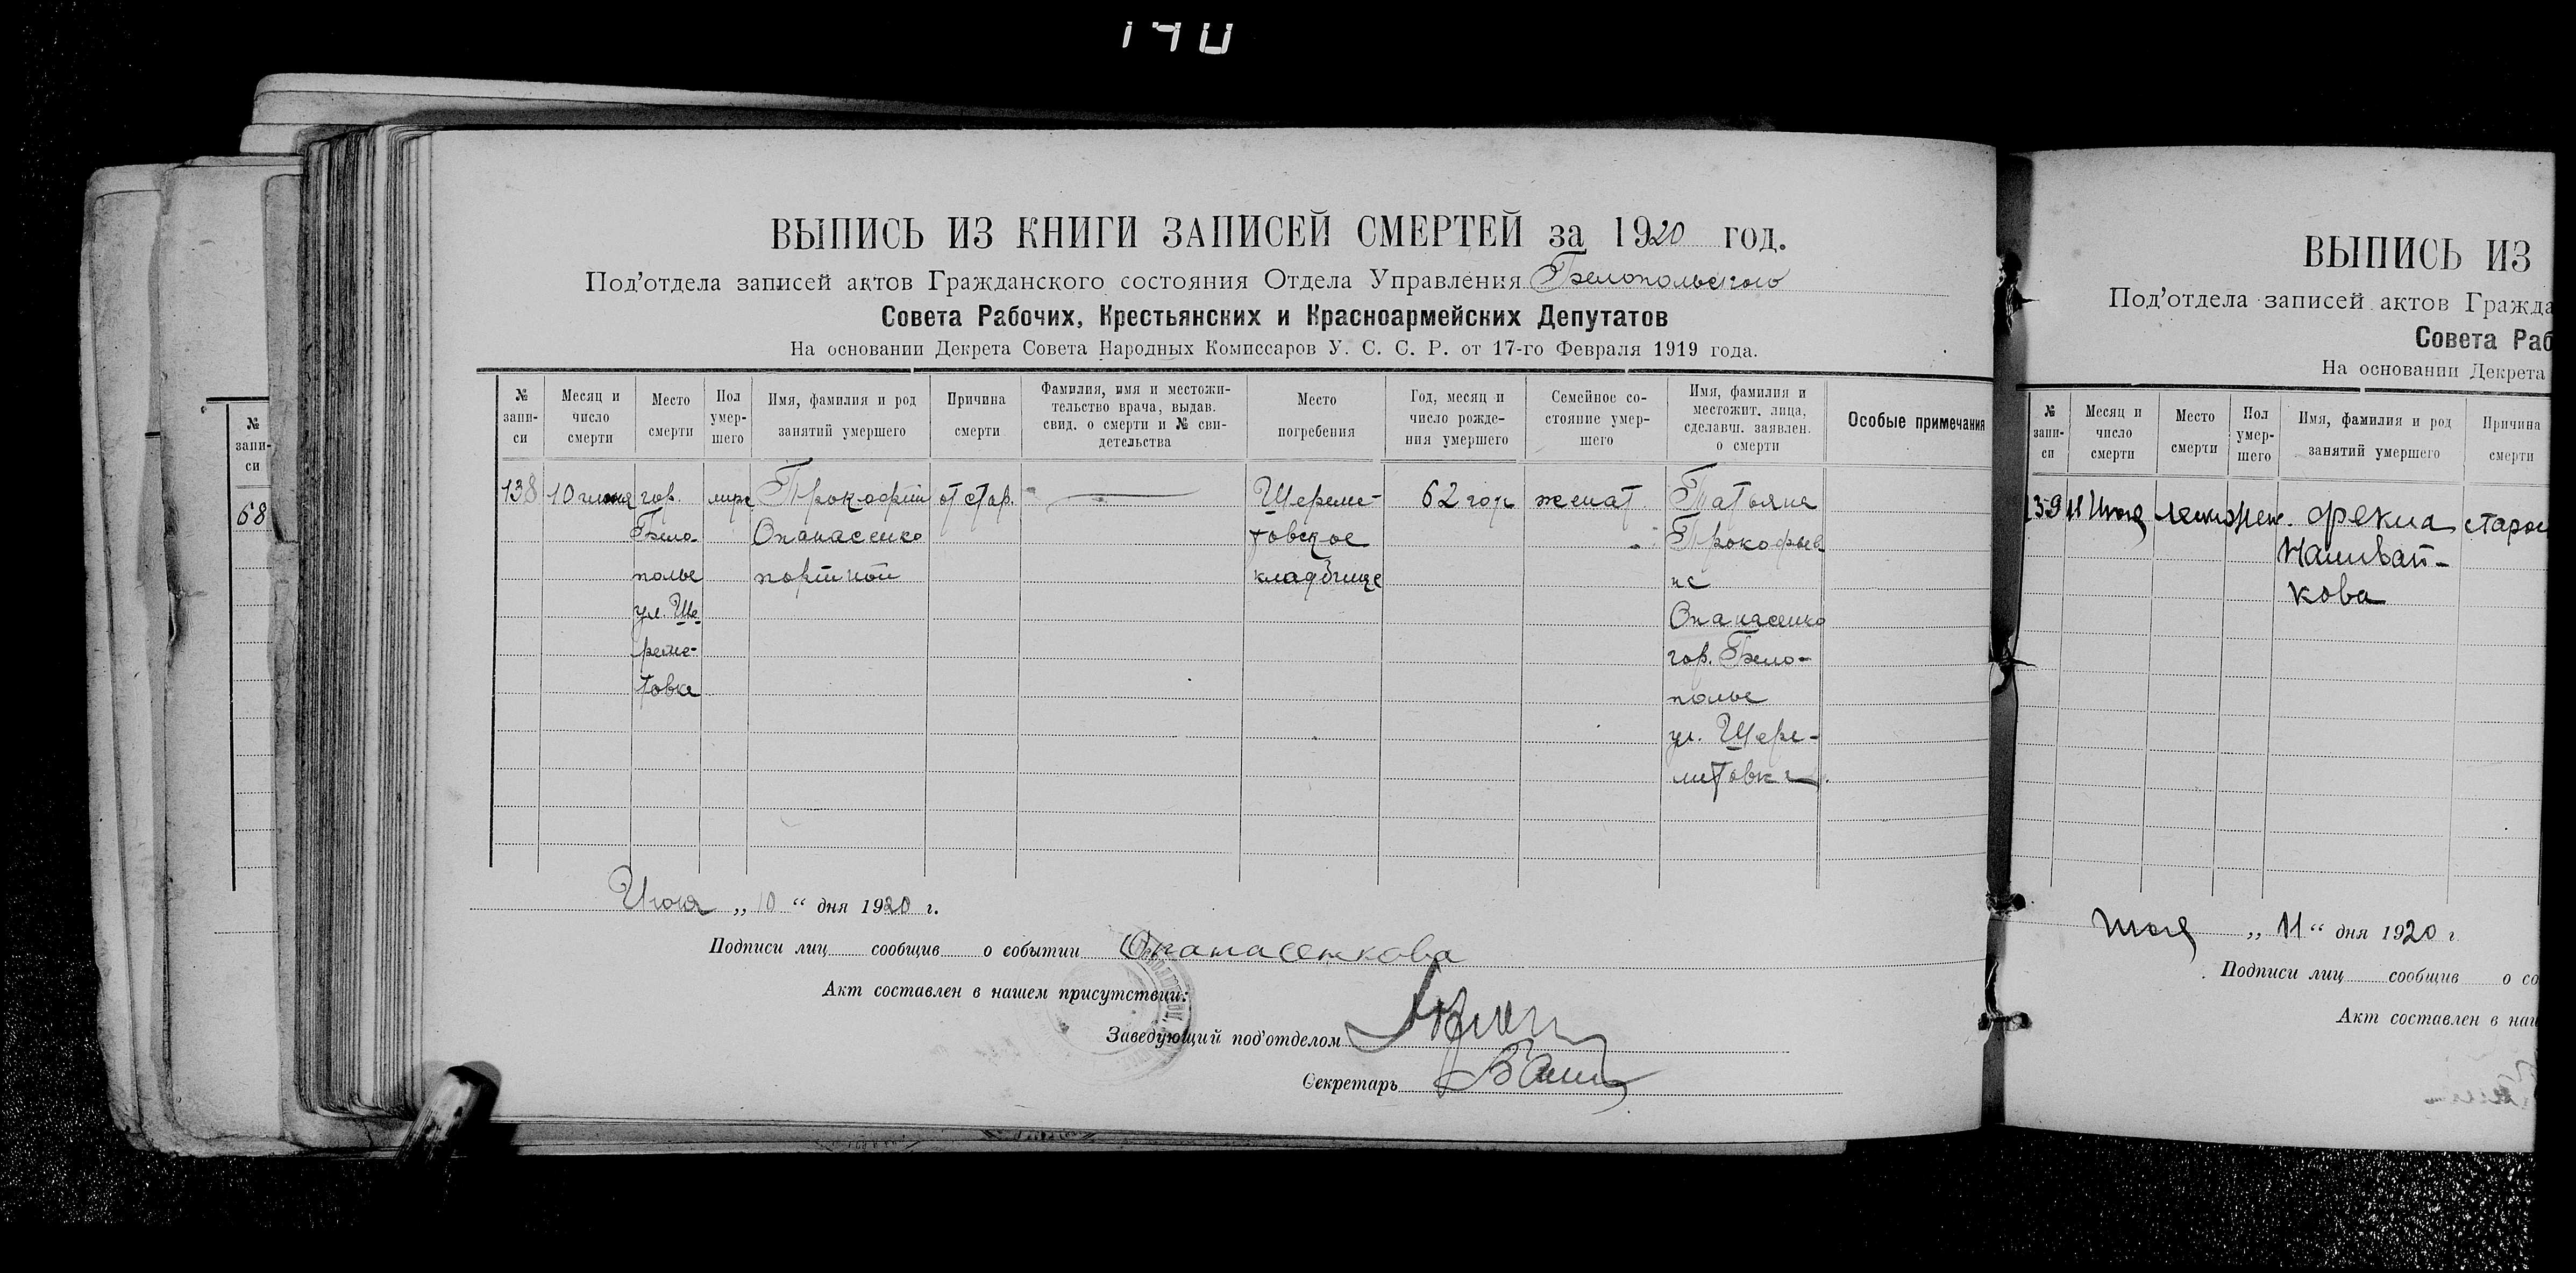 140
ВЫПИСЬ ИЗ КНИГИ ЗАПИСЕЙ СМЕРТЕЙ за 1920 год.
Под'отдела записей актов Гражданского состояния Отдела Управления Белопольского
Совета Рабочих, Крестьянских и Красноармейских Депутатов
На основании Декрета Совета Народных Комиссаров У. С. С. Р. от 17-го Февраля 1919 года.
№ запи-
си
Месяц и
число
смерти
Место
смерти
Пол
умер-
шего
Имя, фамилия и род
занятий умершего
Причина
смерти
Фамилия, имя и местожи-
тельство врача, выдав.
свид. о смерти и № сви-
детельства
Место
погребения
Год, месяц и
число рожде-
ния умершего
Семейное со-
стояние умер-
шего
Имя, фамилия и
местожит. лица,
сделавш. заявлен.
о смерти
Особые примечания
138
10 июня
гор.
Бело-
полье
ул. Ше
реме-
товка
Прокофий
Опанасенко
портной
от стар.
Шереме-
товское
кладбище
62 года
женат
Татьяна
Прокофьев
на
Опанасенко
гор. Бело-
полье
ул. Шере-
метовка
Июня „ 10 “ дня 1920 г.
Подписи лиц сообщив о событии Опанасенкова
Акт составлен в нашем присутствии:
Заведующий под'отделом
Секретарь
№
запи-
си
68
ВЫПИСЬ ИЗ
Под'отдела записей актов Гражда
Совета Раб
На основании Декрета
№
запи-
си
Месяц и
число
смерти
Место
смерти
Пол
умер-
шего
Имя, фамилия и род
занятий умершего
Причина
смерти
139
11
жен.
Фекла
Наливай-
кова
старос
„ 11 “ дня 1920 г
Подписи лиц сообщив о со
Акт составлен в наш